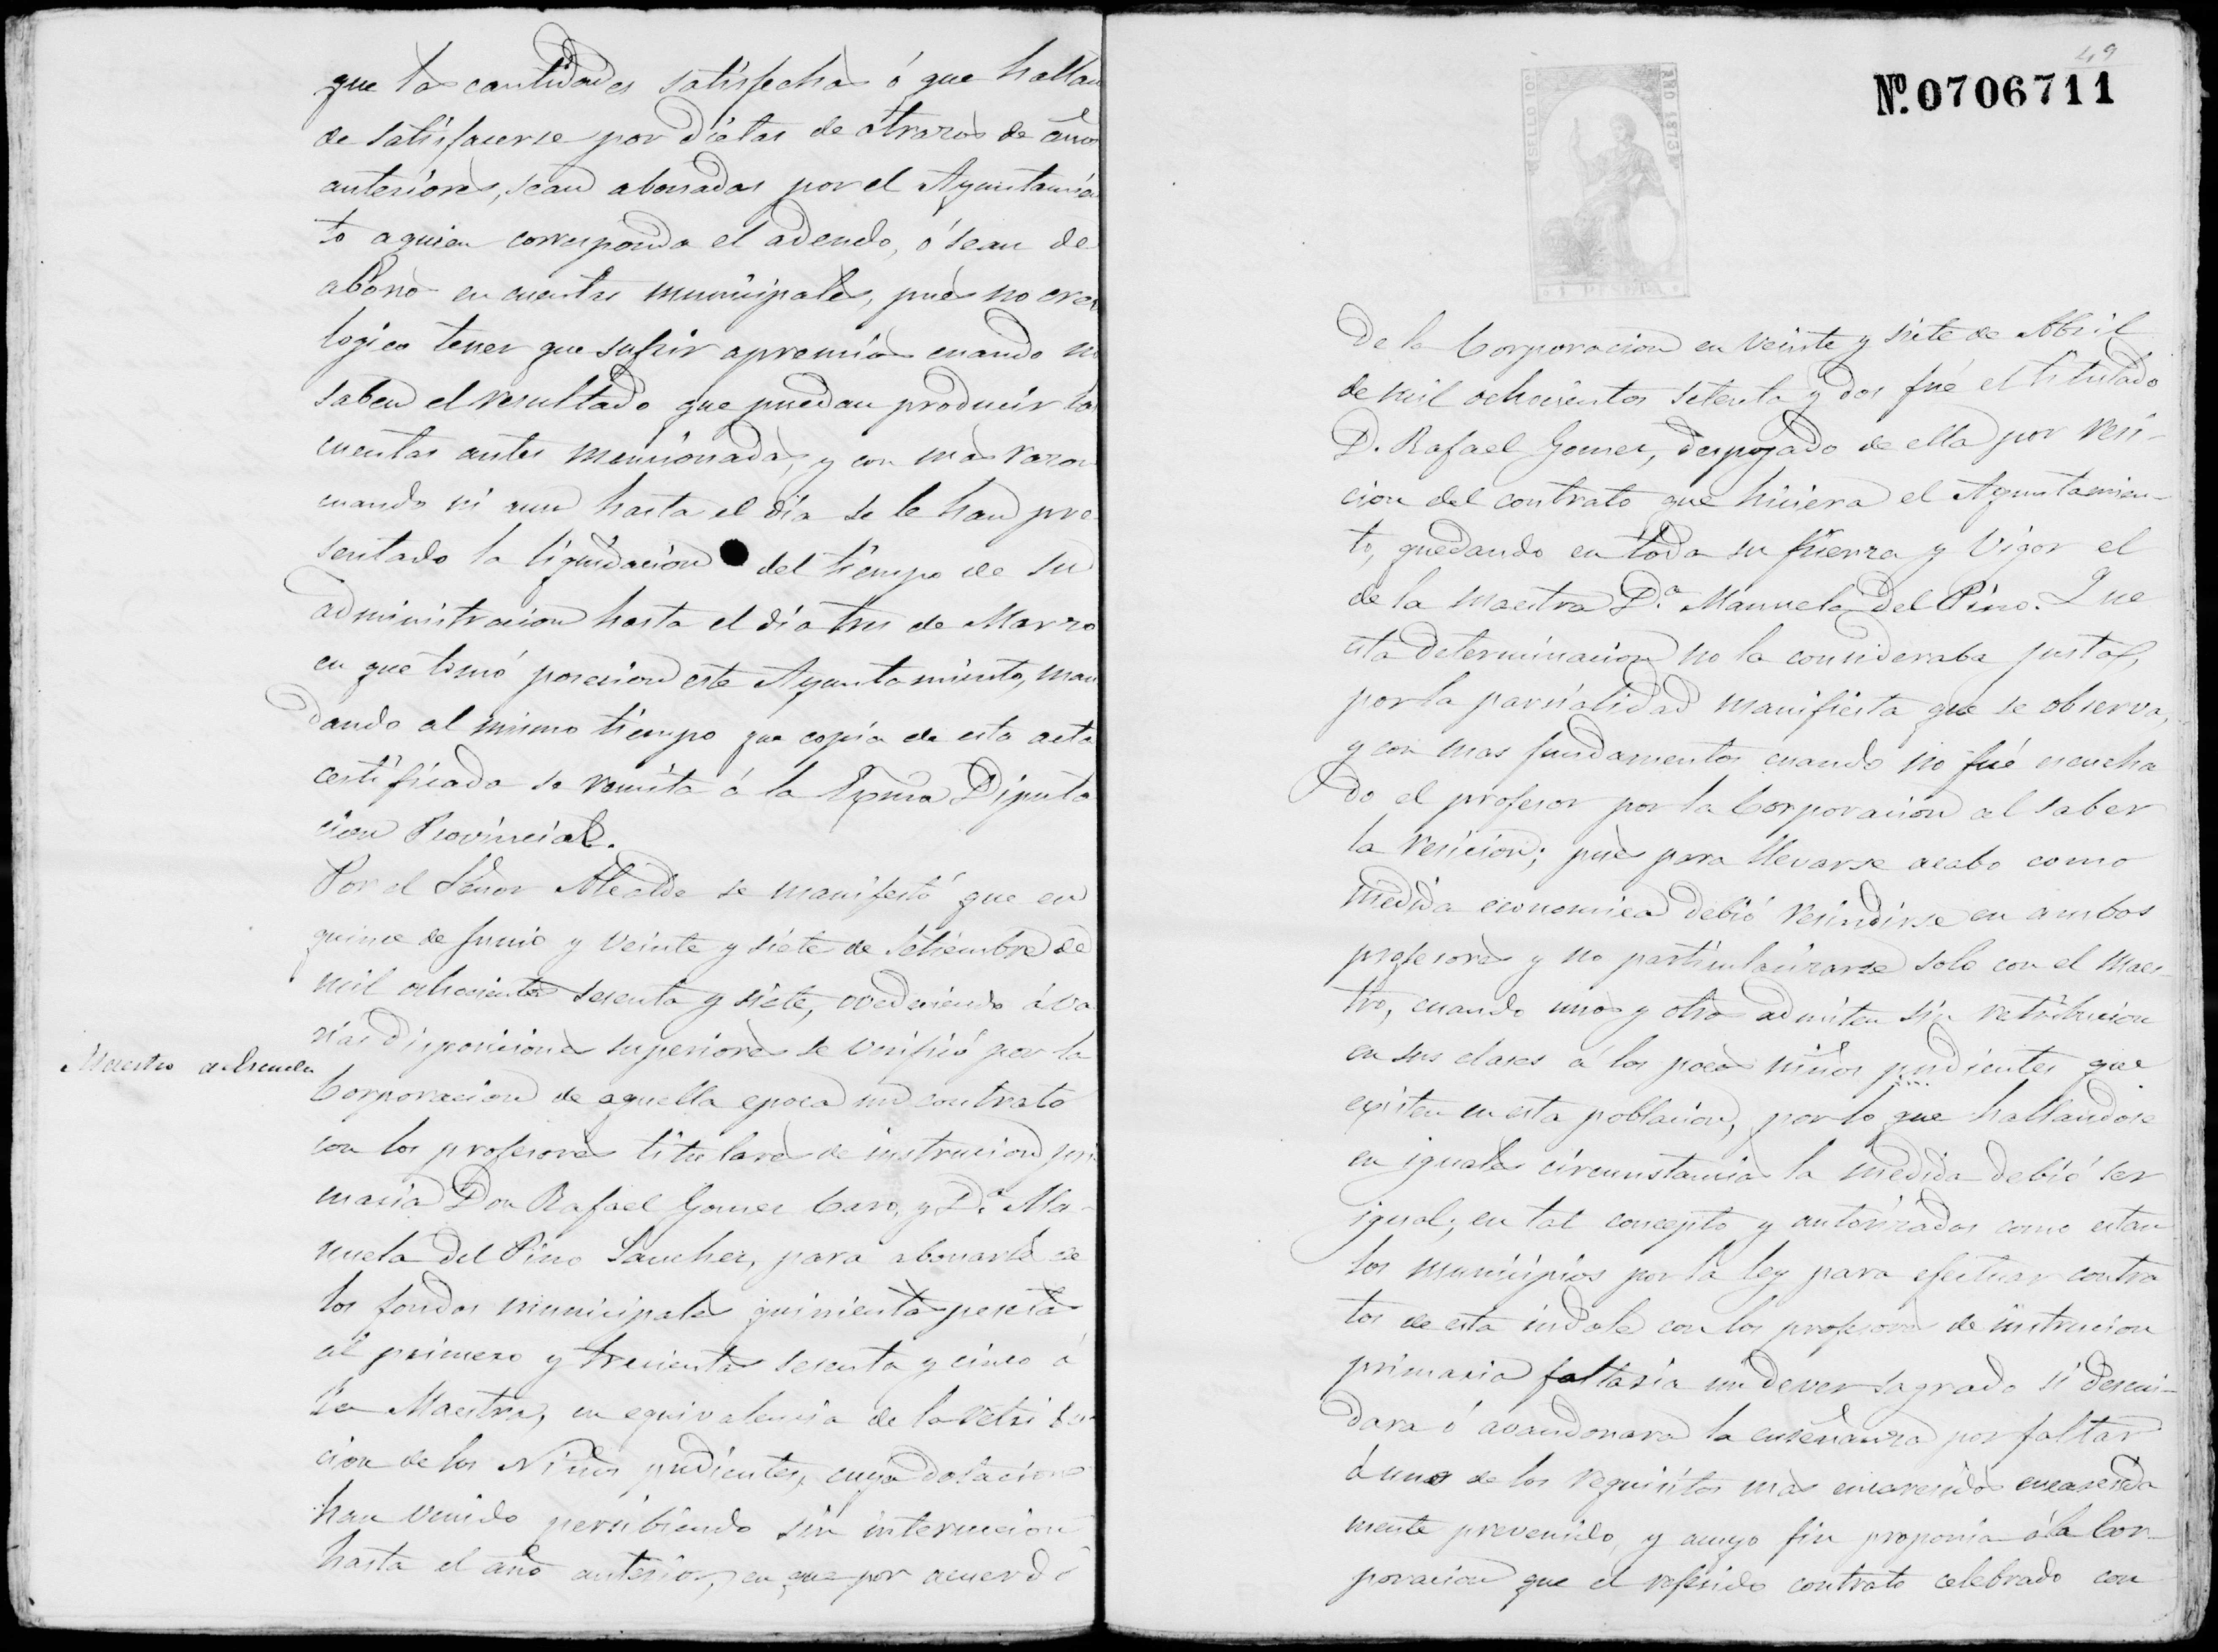 que las cantidades satisfechas ó que hallan
de satisfacerse por dietas de atrazos de años
anteriores, sean abonadas por el Ayuntamien
to a quien corresponda el adeudo, ó sean de
abono en cuentas municipales, pues no era
logico tener que sufrir apremios cuando no
saben el resultado que puedan producir las
cuentas antes mencionadas, y con mas razon
cuando ni aun hasta el dia se le han pre
sentado la liquidacion del tiempo de su
administracion hasta el dia tres de Marzo
en que tomó posesion este Ayuntamiento, man
dando al mismo tiempo que copia de esta acta
certificada se remita á la Exma Diputa
cion Provincial.
Por el Señor Alcalde se manifestó que en
quince de Junio y veinte y siete de Setiembre de
mil ochocientos sesenta y siete, ovedeciendo á va
rias disposiciones superiores se verificó por la
Maestro de Escuela
Corporacion de aquella epoca un contrato
con los profesores titulares de instrucion pri
maria Don Rafael Gomez Caro, y D.ª Ma-
nuela del Pino Sanchez, para abonarle de
los fondos municipales quinientas pesetas
al primero y trecientas sesenta y cinco á
la Maestra, en equivalencia de la retribu
cion de los Niños pudientes, cuya dotacion
han venido persibiendo sin interrucion
hasta el año anterior, en que por acuerdo
49
Nº. 0706711
SELLO 10º
AÑO 1873
De la Corporacion en veinte y siete de Abril
de mil ochocientos setenta y dos fué el titulado
D. Rafael Gomez, despojado de ella por resi-
cion del contrato que hiciera el Ayuntamien-
to, quedando en toda su fuerza y vigor el
de la maestra D.ª Manuela del Pino. Que
esta determinacion no la consideraba justa,
por la parsialidad manifiesta que se observa,
y con mas fundamentos cuando no fué escucha
do el profesor por la Corporacion al saber
la resicion; pues para llevarse acabo como
medida economica debió resindirse en ambos
profesores y no particularizarse solo con el maes-
tro, cuando unos y otros admiten sin retribucion
en sus clases á los pocos niños pudientes que
existen en esta poblacion, por lo que hallandose
en iguales circunstancias la medida debió ser
igual; en tal concepto y autorizados como estan
los municipios por la ley para efectuar contra
tos de esta indole con los profesores de instrucion
primaria faltaria un dever sagrado si descui-
dara ó avandonara la enseñanza por faltar
á unos de los requisitos mas encaresidos encaresida
mente prevenido, y cuyo fin proponia á la Cor-
poracion que el referido contrato celebrado con